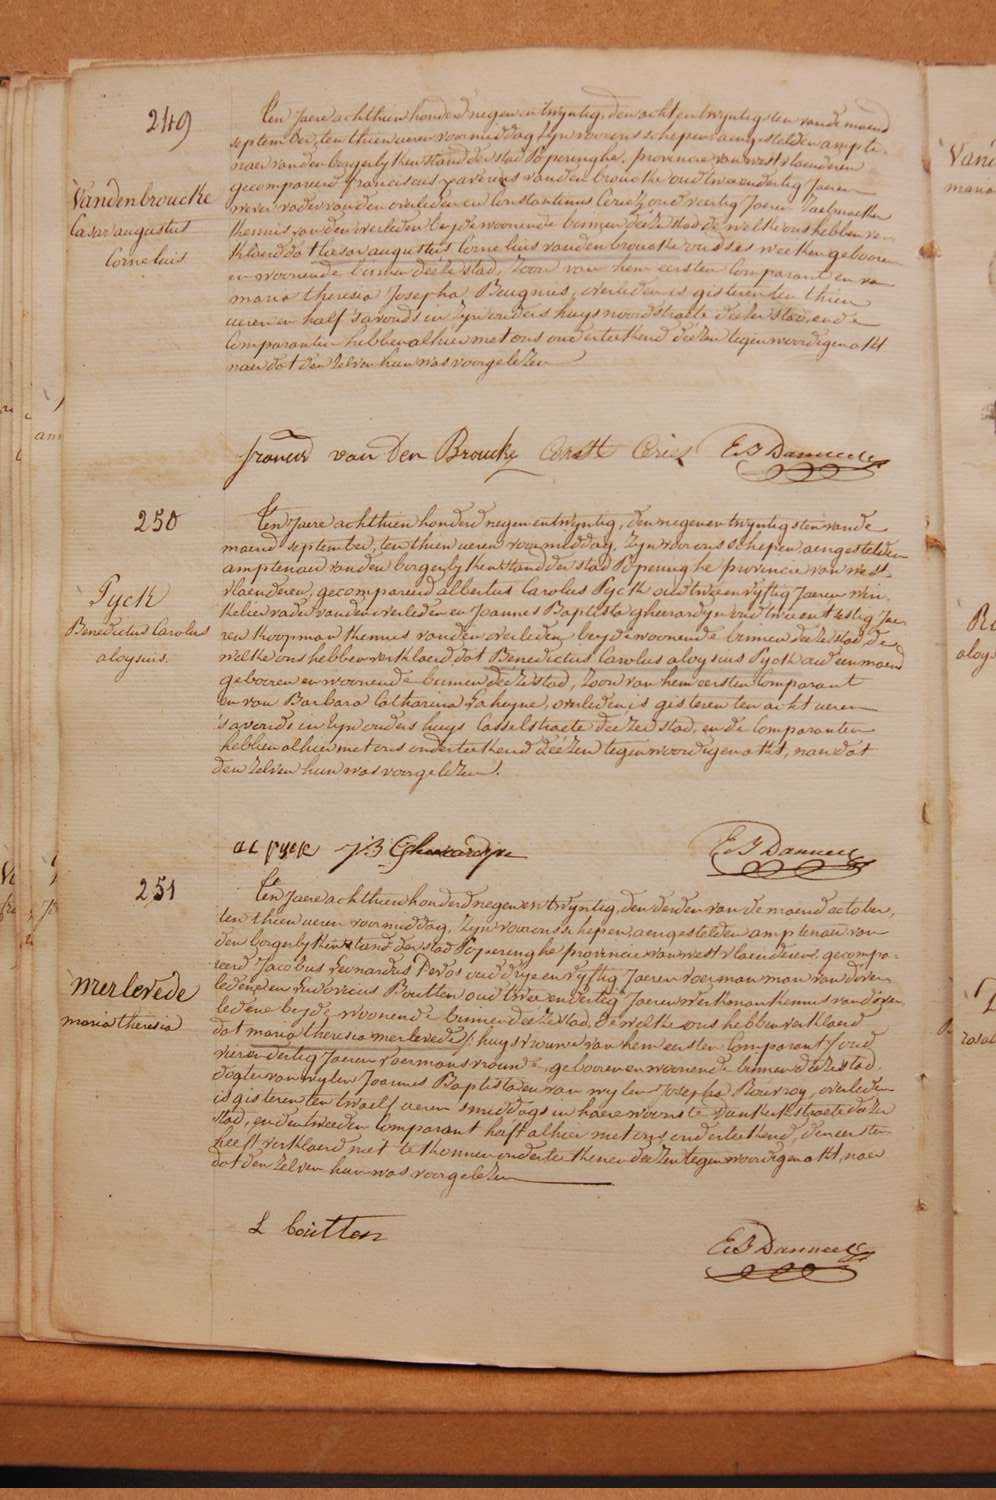 249
Vandenbroucke
Cæsar augustus
Cornelius.
Ten Jaere achthien honderd negen en twyntig, den acht en twyntigsten van de maend
september, ten thien ueren voormiddag, zyn voor ons schepen aengestelden ampte-
naer van den borgerlyken stand der stad Poperinghe, provincie van westvlaenderen
gecompareerd franciscus xaverius vanden broucke oud twee en dertig Jaeren
wever vader van den overleden en Constantinus Cöriez oud veertig Jaeren
kennis van den overleden beyde woonende binnen deeze stad de welke ons hebben ver-
klaerd dat Cæsar augustus Cornelius vanden broucke oud ses weeken gebooren
en woonende binnen deeze stad, zoon van hem eersten Comparant en van
maria theresia Josepha Beugnies, overleden is gisteren ten thien
ueren en half s'avonds in zyn ouders huys noordstraete deezer stad, en de
Comparanten hebben alhier met ons onderteekend deezen tegenwoordigen akt
naer dat den zelven hun was voorgelezen
van Den Broucke E J Danneel
250
Pyck
Benedictus Carolus
aloysius.
Ten Jaere achthien honderd negen en twyntig, den negen en twyntigsten van de
maend september, ten thien ueren voormiddag, zyn voor ons schepen aengestelden
amptenaer van den borgerlyken stand der stad Poperinghe provincie van west-
vlaenderen, gecompareerd albertus Carolus Pyck oud twee en vyftig Jaeren win-
kelier vader van den overleden en Joannes Baptista gheerardyn oud twee en sestig Jae-
ren koopman kennis van den overleden, beyde woonende binnen deeze stad, de
welke ons hebben verklaerd dat Benedictus Carolus aloysius Pyck oud een maend
gebooren en woonende binnen deeze stad, zoon van hem eersten Comparant
en van Barbara Catharina Laheyne, overleden is gisteren ten acht ueren
s'avonds in zyn ouders huys Casselstraete deezer stad, en de Comparanten
hebben alhier met ons onderteekend deezen tegenwoordigen akt, naer dat
den zelven hun was voorgelezen.
a c pyck J:B Gheerardyn E J Danneel
251
Merlevede
maria theresia
Ten Jaere achthien honderd negen en twyntig, den derden van de maend october,
ten thien ueren voormiddag, zyn voor ons schepen, aengestelden amptenaer van
den borgerlyken stand der stad Poperinghe provincie van westvlaenderen gecompa-
reerd Jacobus Leonardus Devos oud drye en vyftig Jaeren voerman man van d'over-
ledene en Ludovicus Boutten oud twee en dertig Jaeren werkman kennis van d'over-
ledene beyde woonende binnen deeze stad, de welke ons hebben verklaerd
dat maria theresia merlevede huysvrouwe van hem eersten Comparant oud
vier en dertig Jaeren voermansvrouwe, gebooren en woonende binnen deeze stad,
dogter van wylen Joannes Baptista en van wylen Josepha Rouvroy, overleden
is gisteren ten twaelf ueren smiddags in haere woonste Dunkerkstraete deezer
stad, en den tweeden Comparant heeft alhier met ons onderteekend, den eersten
heeft verklaerd niet te konnen onderteekenen deezen tegenwoordigen akt, naer
dat den zelven hun was voorgelezen
L boutten E J Danneel